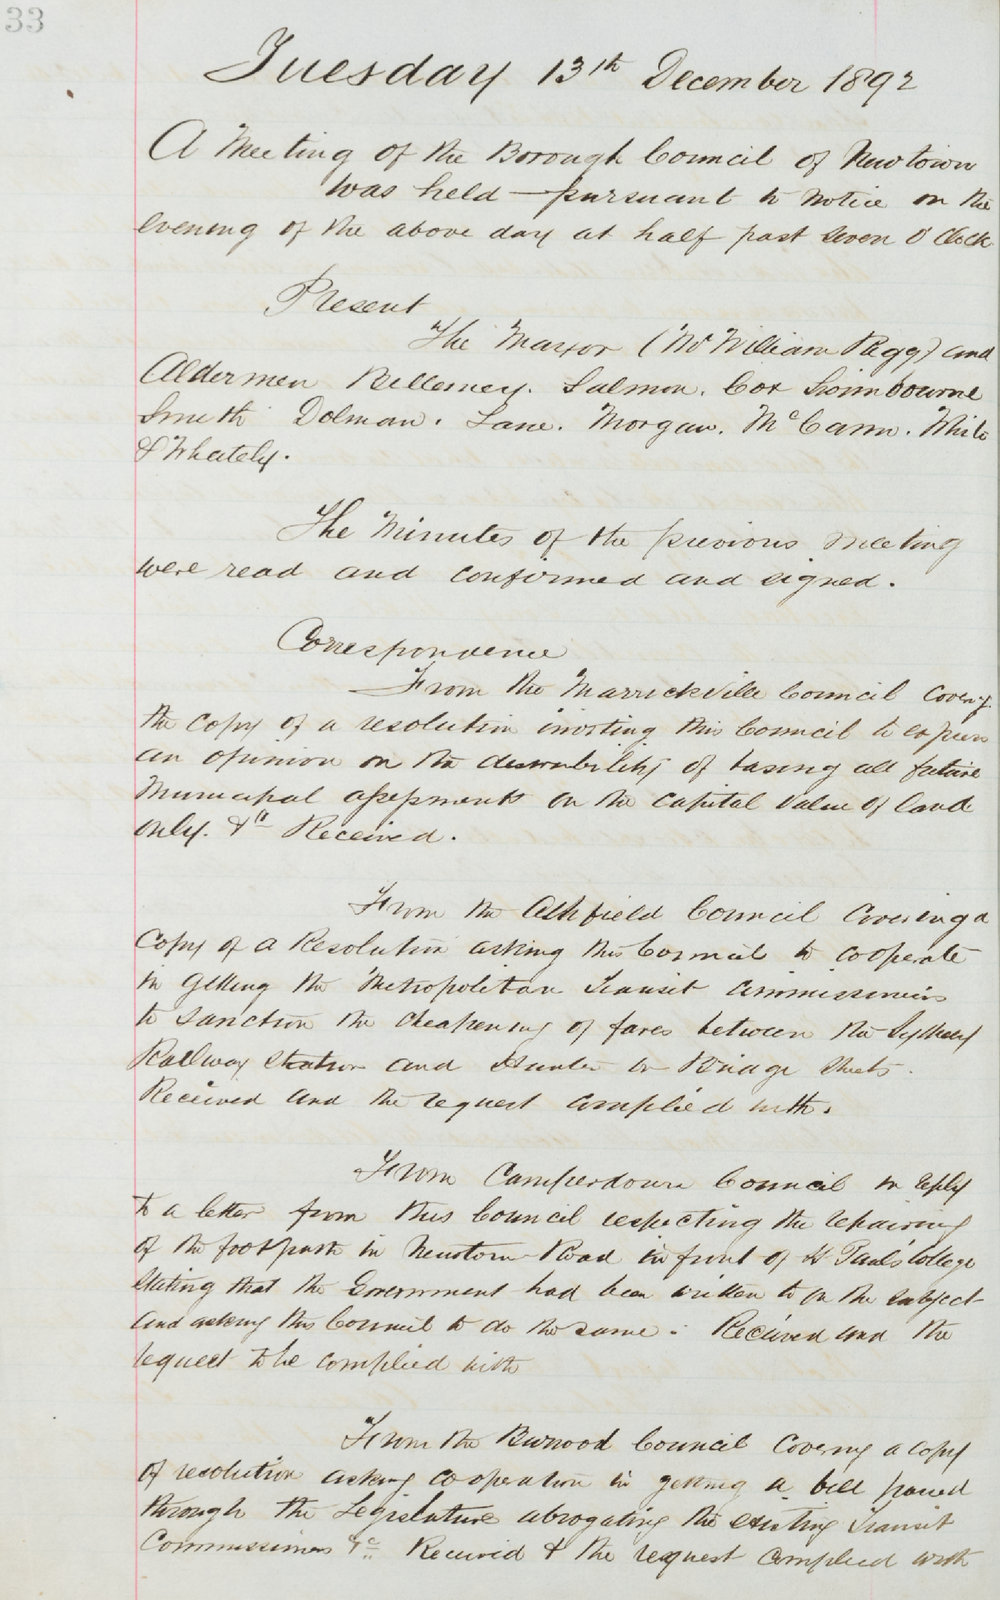 33
Tuesday 13th December 1892
A Meeting of the Borough Council of Newtown
was held – pursuant to notice on the
evening of the above day at half past seven O'Clock
Present
The Mayor (Mr William Rigg) and
Aldermen Bellemey. Salmon. Cox Swimbourne
Smith Dolman. Lane. Morgan. McCann. White
& Whately.
The Minutes of the previous meeting
were read and confirmed and signed.
Correspondence
From the Marrickville Council covering
the copy of a resolution inviting this Council to express
an opinion on the desirability of basing all future
Municipal assessments on the capital value of land
only. &c Received.
From the Ashfield Council covering a
Copy of a Resolution asking this Council to cooperate
in getting the Metropolitan Transit Commissioners
to sanction the cheapening of fares between the Sydney
Railway Station and Hunter or Bridge Streets.
Received and the request complied with.
From Camperdown Council in reply
to a letter from this Council respecting the repairing
of the footpath in Newtown Road in front of St Paul's College
stating that the Government had been written to on the subject
and asking this Council to do the same. Received and the
request to be complied with
From the Burwood Council covering a copy
of resolution asking cooperation in getting a bill passed
through the Legislature abrogating the existing Transit
Commissioners &c. Received & the request complied with